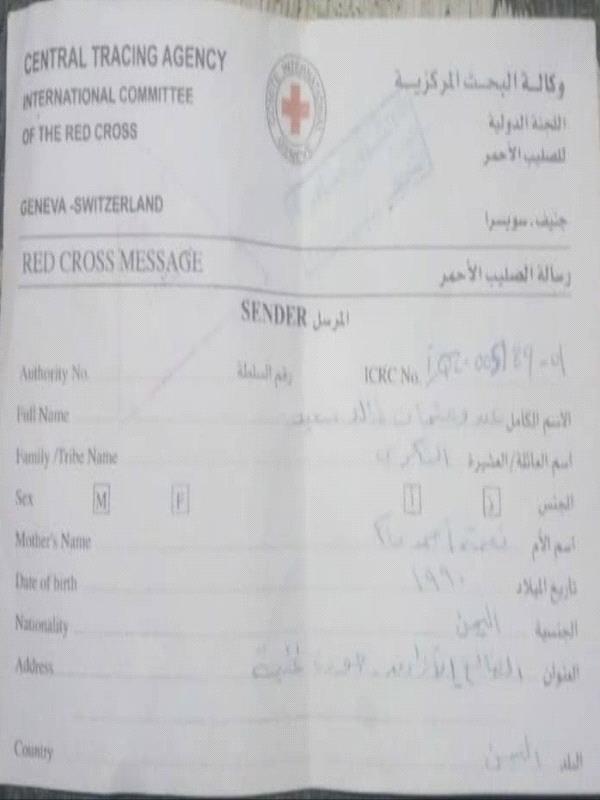 CENTRAL TRACING AGENCY
INTERNATIONAL COMMITTEE
OF THE RED CROSS
GENEVA -SWITZERLAND
وكالة البحث المركزية
اللجنة الدولية
للصليب الأحمر
جنيف . سويسرا
COMITE INTERNATIONAL GENEVE
RED CROSS MESSAGE رسالة الصليب الأحمر
SENDER المرسل
Authority No. رقم السلطة ICRC No.
Full Name الاسم الكامل خالد سعيد
Family /Tribe Name اسم العائلة/العشيرة
Sex M F الجنس
Mother's Name اسم الأم
Date of birth تاريخ الميلاد ١٩٩٠
Nationality الجنسية اليمن
Address العنوان
Country البلد اليمن